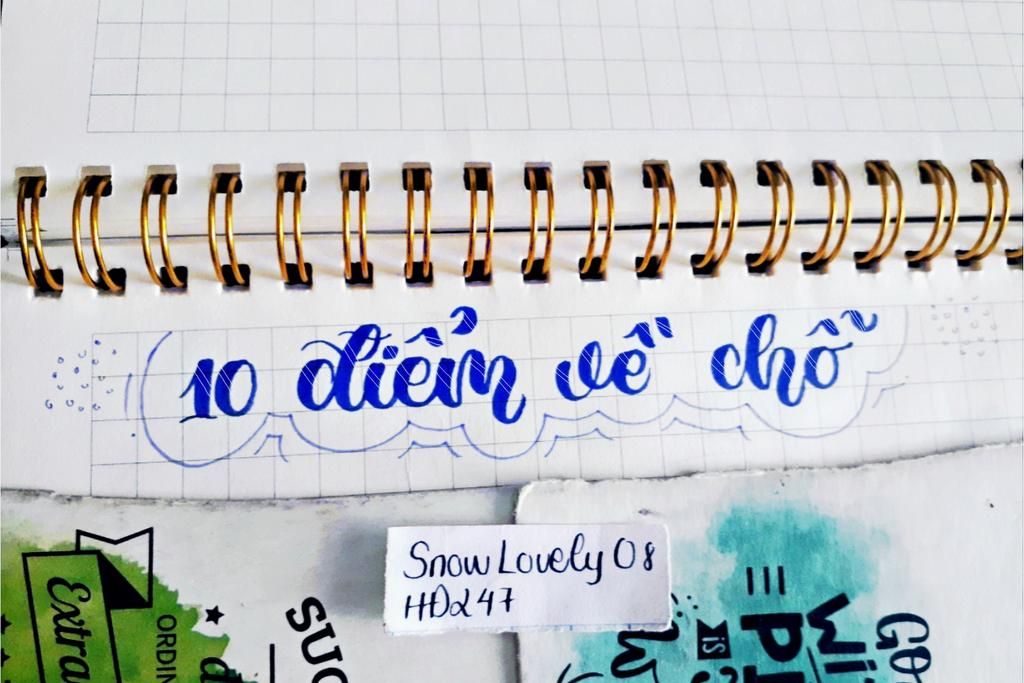 10 điểm về chỗ
Snow Lovely 08
HDα47
Extra
ORDIN
SUC
GO
Wi
IS